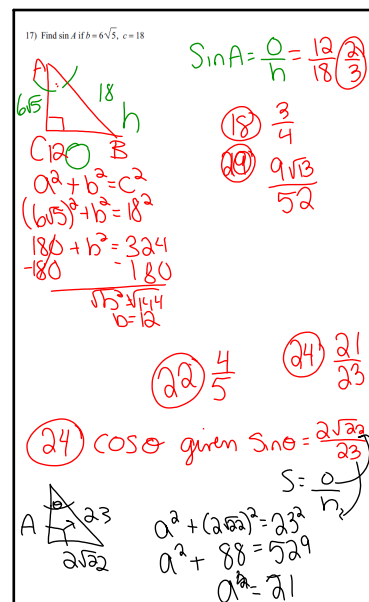 17) Find sin A if b = 6√5, c = 18
A
6√5
18
h
C 12 O B
a² + b² = c²
(6√5)² + b² = 18²
180 + b² = 324
-180 -180
√b² = √144
b = 12
Sin A = O/h = 12/18 2/3
18 3/4
29 9√13/52
22 4/5
24 21/23
24 cos θ given Sin θ = 2√22/23
S = o/h
θ
A
23
2√22
a² + (2√22)² = 23²
a² + 88 = 529
a² = 21